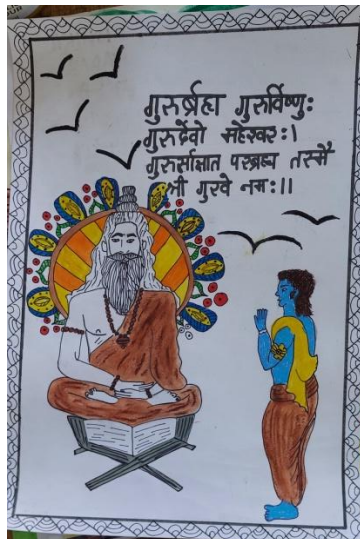 गुरुर्ब्रह्मा गुरुर्विष्णुः
गुरुर्देवो महेश्वरः।
गुरुर्साक्षात परब्रह्म तस्मै
श्री गुरवे नमः।।